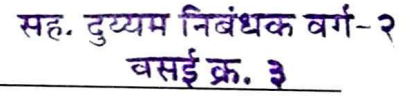 सह. दुय्यम निबंधक वर्ग-२
वसई क्र. ३